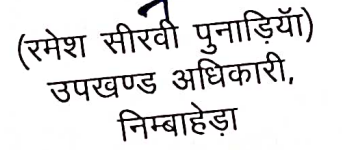 (रमेश सीरवी पुनाड़ियॉ)
उपखण्ड अधिकारी,
निम्बाहेड़ा